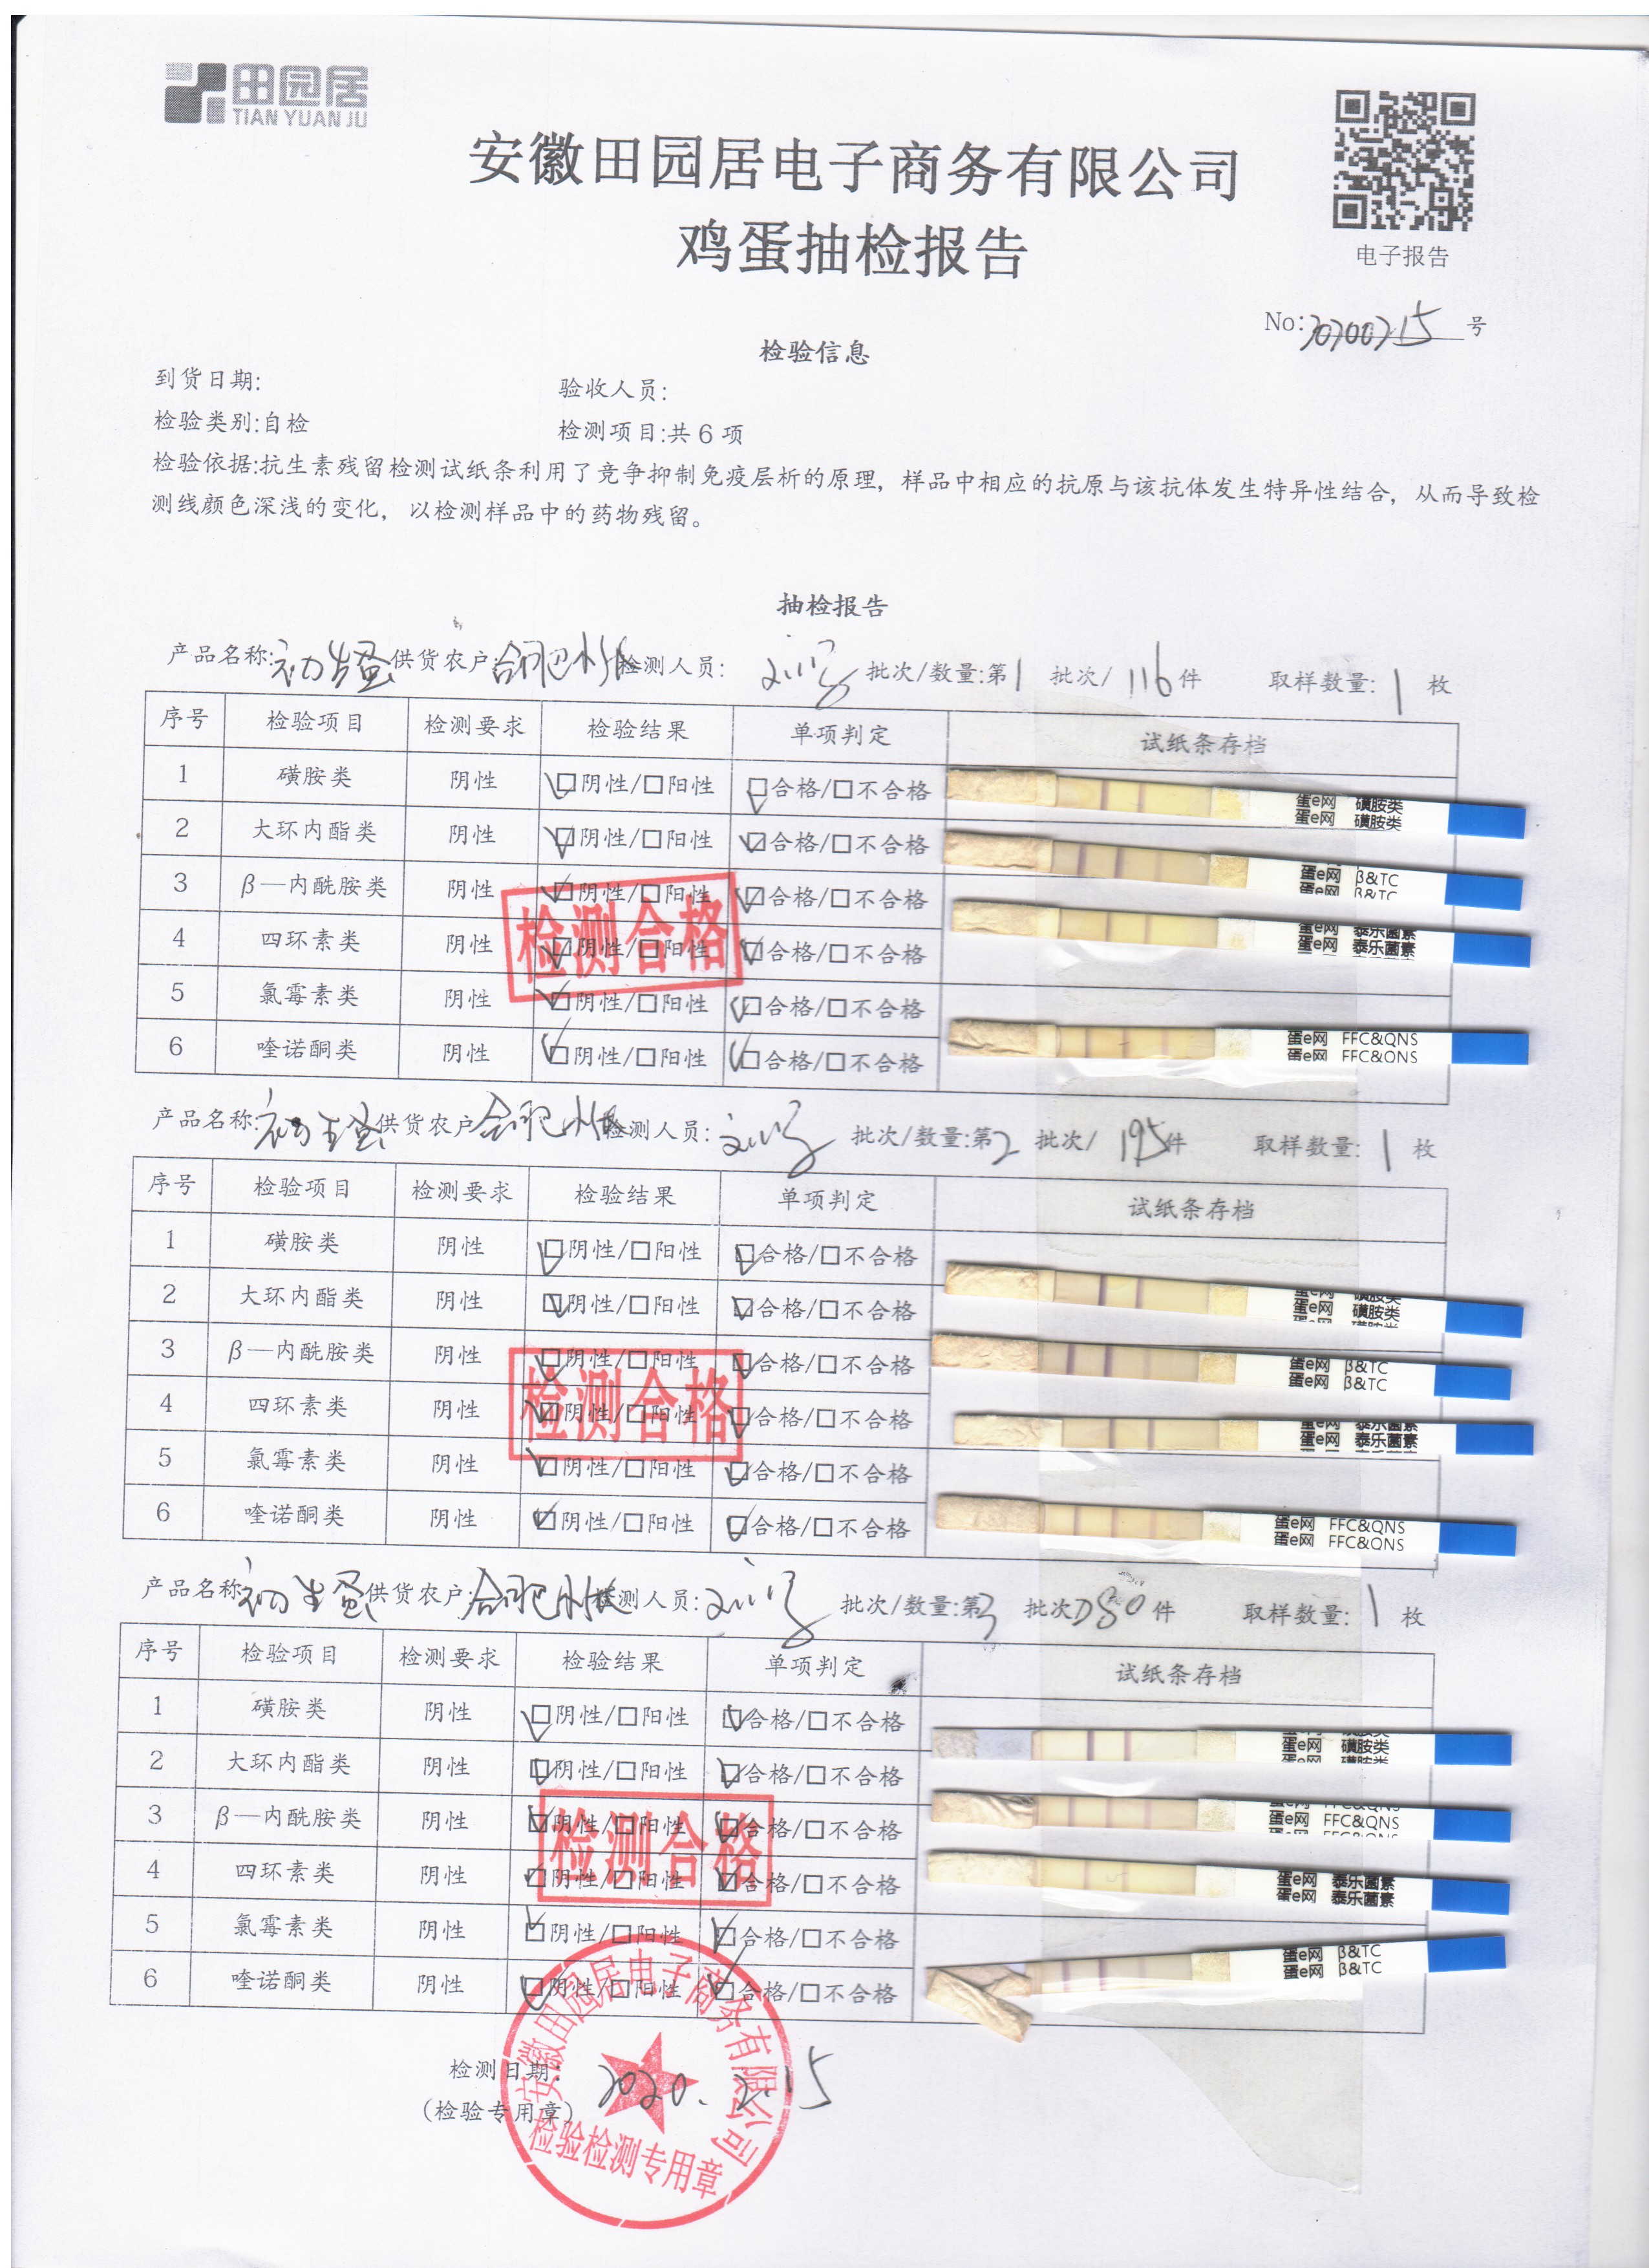 田园居
TIAN YUAN JU
安徽田园居电子商务有限公司
鸡蛋抽检报告
电子报告
No:20200215号
检验信息
到货日期: 验收人员:
检验类别:自检 检测项目:共6项
检验依据:抗生素残留检测试纸条利用了竞争抑制免疫层析的原理,样品中相应的抗原与该抗体发生特异性结合,从而导致检
测线颜色深浅的变化,以检测样品中的药物残留。
抽检报告
产品名称:初生蛋 供货农户:合肥 检测人员: 批次/数量:第1 批次/116件 取样数量:1枚
序号 检验项目 检测要求 检验结果 单项判定 试纸条存档
1 磺胺类 阴性 ☑阴性/□阳性 ☑合格/□不合格 蛋e网 磺胺类
蛋e网 磺胺类
2 大环内酯类 阴性 ☑阴性/□阳性 ☑合格/□不合格
3 β—内酰胺类 阴性 ☑阴性/□阳性 ☑合格/□不合格 蛋e网 β&TC
蛋e网 β&TC
4 四环素类 阴性 ☑阴性/□阳性 ☑合格/□不合格 蛋e网 泰乐菌素
蛋e网 泰乐菌素
5 氯霉素类 阴性 ☑阴性/□阳性 ☑合格/□不合格
6 喹诺酮类 阴性 ☑阴性/□阳性 ☑合格/□不合格 蛋e网 FFC&QNS
蛋e网 FFC&QNS
检测合格
产品名称:初生蛋 供货农户:合肥 检测人员: 批次/数量:第2 批次/195件 取样数量:1枚
序号 检验项目 检测要求 检验结果 单项判定 试纸条存档
1 磺胺类 阴性 ☑阴性/□阳性 ☑合格/□不合格
2 大环内酯类 阴性 ☑阴性/□阳性 ☑合格/□不合格 蛋e网 磺胺类
蛋e网 磺胺类
3 β—内酰胺类 阴性 ☑阴性/□阳性 ☑合格/□不合格 蛋e网 β&TC
蛋e网 β&TC
4 四环素类 阴性 ☑阴性/□阳性 ☑合格/□不合格 蛋e网 泰乐菌素
蛋e网 泰乐菌素
5 氯霉素类 阴性 ☑阴性/□阳性 ☑合格/□不合格
6 喹诺酮类 阴性 ☑阴性/□阳性 ☑合格/□不合格 蛋e网 FFC&QNS
蛋e网 FFC&QNS
检测合格
产品名称:初生蛋 供货农户:合肥 检测人员: 批次/数量:第3 批次/80件 取样数量:1枚
序号 检验项目 检测要求 检验结果 单项判定 试纸条存档
1 磺胺类 阴性 ☑阴性/□阳性 ☑合格/□不合格 蛋e网 磺胺类
2 大环内酯类 阴性 ☑阴性/□阳性 ☑合格/□不合格 蛋e网 磺胺类
3 β—内酰胺类 阴性 ☑阴性/□阳性 ☑合格/□不合格 蛋e网 FFC&QNS
4 四环素类 阴性 ☑阴性/□阳性 ☑合格/□不合格 蛋e网 泰乐菌素
蛋e网 泰乐菌素
5 氯霉素类 阴性 ☑阴性/□阳性 ☑合格/□不合格 蛋e网 β&TC
蛋e网 β&TC
6 喹诺酮类 阴性 ☑阴性/□阳性 ☑合格/□不合格
检测合格
检测日期: 2020.2.15
(检验专用章)
安徽田园居电子商务有限公司
检验检测专用章